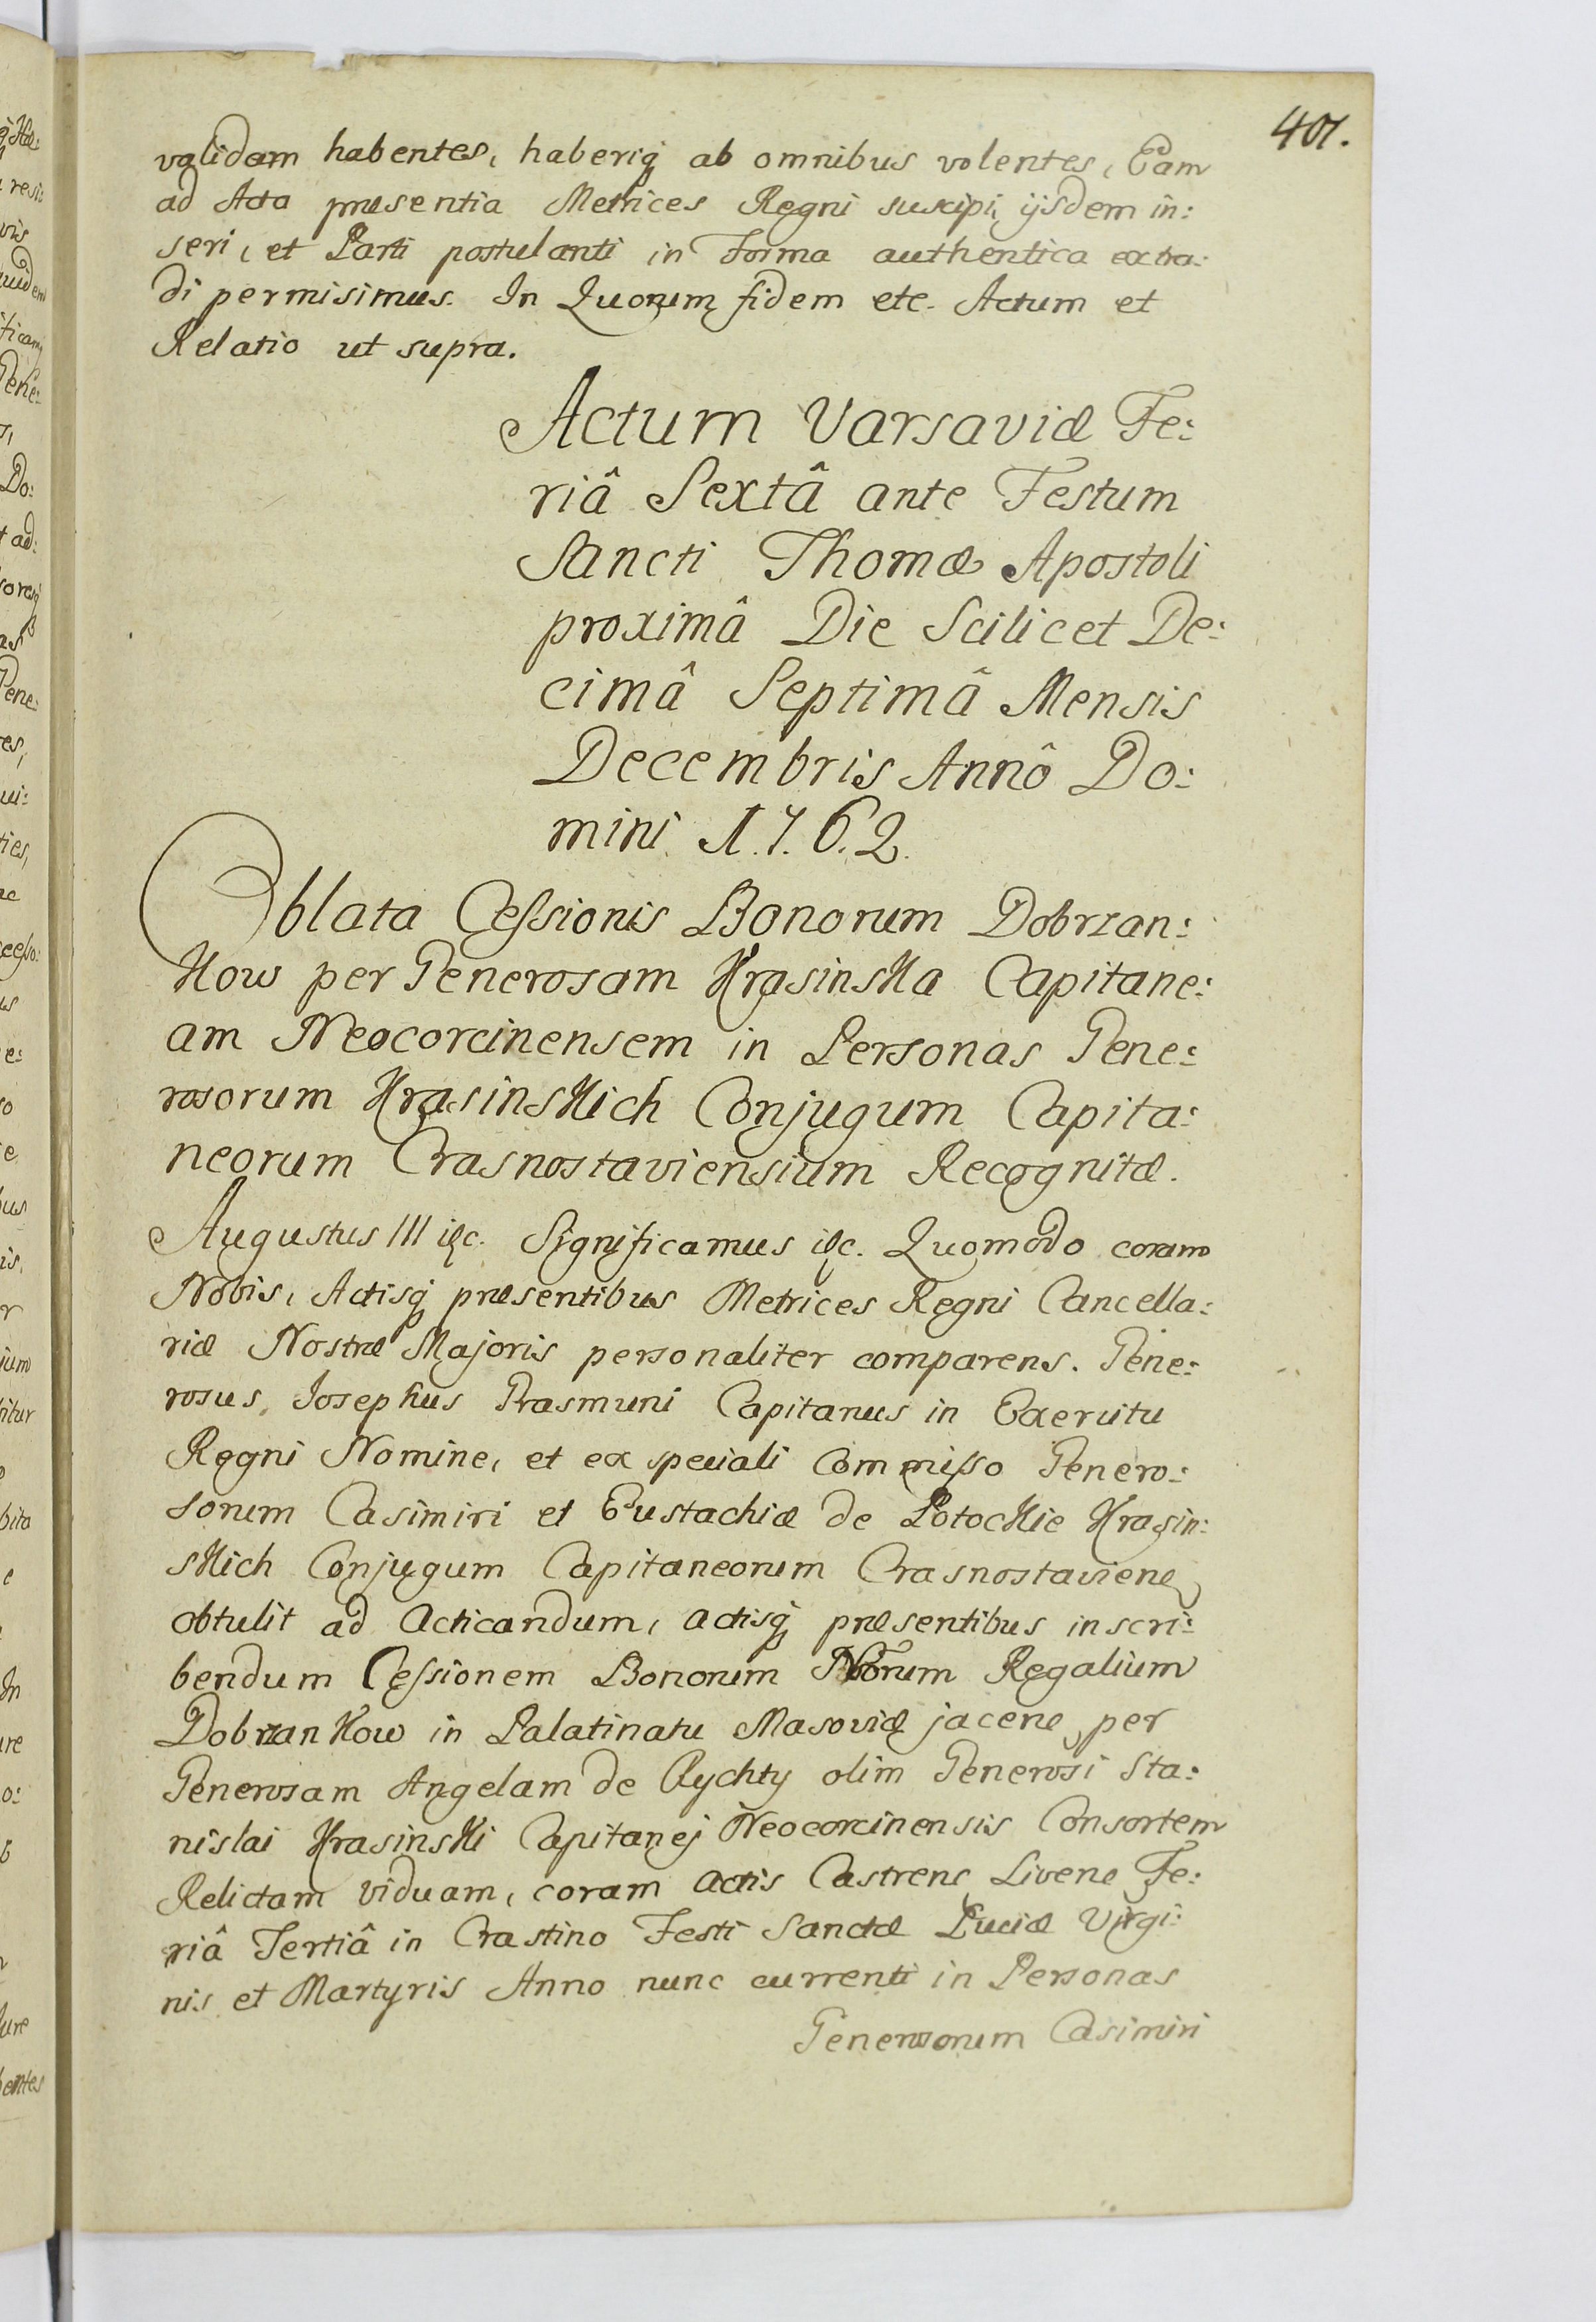 401.
validam habentes, haberiq́ ab omnibus volentes, Eam
ad Acta præsentia Metrices Regni suscipi, ijsdem in:
seri, et Parti postulanti in Forma authentica extra:
di permisimus. In Quorum fidem etc. Actum et
Relatio ut supra.
Actum Varsaviæ Fe:
riâ Sextâ ante Festum
Sancti Thomæ Apostoli
proximâ Die Scilicet De:
cimâ Septimâ Mensis
Decembris Annô Do:
mini 1.7.6.2.
Oblata Cessionis Bonorum Dobrzan:
kow per Generosam Krasinska Capitane:
am Neocorcinensem in Personas Gene:
rosorum Krasinskich Conjugum Capita:
neorum Crasnostaviensium Recognitæ.
Augustus III etc. Significamus etc. Quomodo coram
Nobis, Actisq́ præsentibus Metrices Regni Cancella:
riæ Nostræ Majoris personaliter comparens. Gene:
rosus Josephus Grasmuni Capitanus in Exercitu
Regni Nomine, et ex speciali Commisso Genero:
sorum Casimiri et Eustachiæ de Potockie Krasin:
skich Conjugum Capitaneorum Crasnostaviens
obtulit ad Acticandum, actisq́ præsentibus inscri:
bendum Cessionem Bonorum Nrorum Regalium
Dobrzankow in Palatinatu Masoviæ jacens per
Generosam Angelam de Rychty olim Generosi Sta:
nislai Krasinski Capitanej Neocorcinensis Consortem
Relictam viduam, coram actis Castrens Livens Fe:
riâ Tertiâ in Crastino Festi Sanctæ Luciæ Virgi:
nis et Martyris Anno nunc currenti in Personas
Generosorum Casimiri